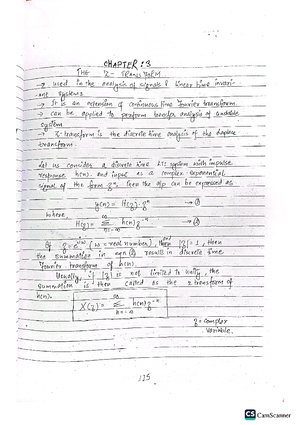 CHAPTER: 3
THE Z - TRANSFORM
→ used in the analysis of signals & linear time invari-
ant systems
→ It is an extension of continuous time fourier transform.
→ can be applied to perform transfer analysis of unstable
system
Z-transform is the discrete time analysis of the laplace
transform.
Let us consider a discrete time LTI system with impulse
response h(n). and input as a complex exponential
signal of the form z^n. Then the o/p can be expressed as
y(n) = H(z). z^n
where
H(z) = ∞ Σ n=-∞ h(n) z^-n
If z = e^jω (ω = real number), then |z| = 1, then
the summation in eqn results in discrete time
fourier transform of h(n).
Usually, if |z| is not limited to unity, the
summation is then called as the z transform of
h(n).
X(z) = ∞ Σ n=-∞ h(n) z^-n
z = complex
variable.
CS CamScanner